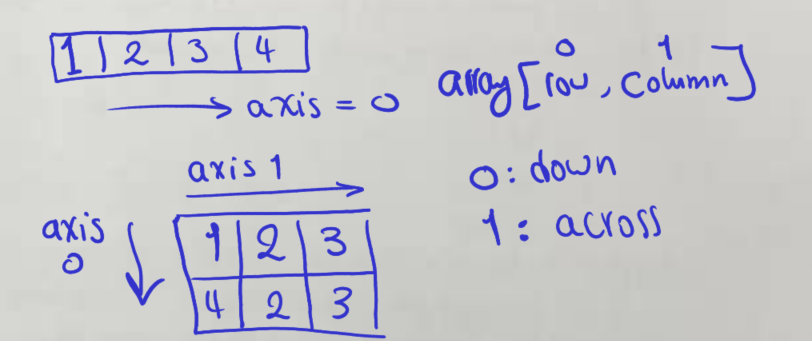 1 | 2 | 3 | 4
axis = 0
0 1
array[row, column]
axis 1
axis 0
1 2 3
4 2 3
0: down
1: across